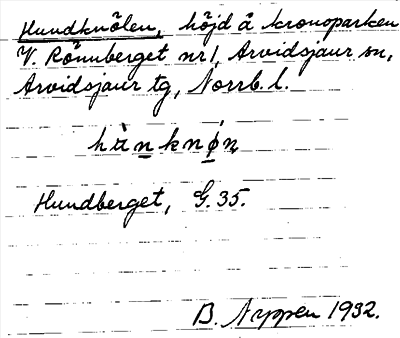 Hundknölen, höjd å kronoparken
V. Rönnberget nr 1, Arvidsjaur sn,
Arvidsjaur tg, Norrb. l.
Hundberget, G. 35.
B. Nyppen 1932.